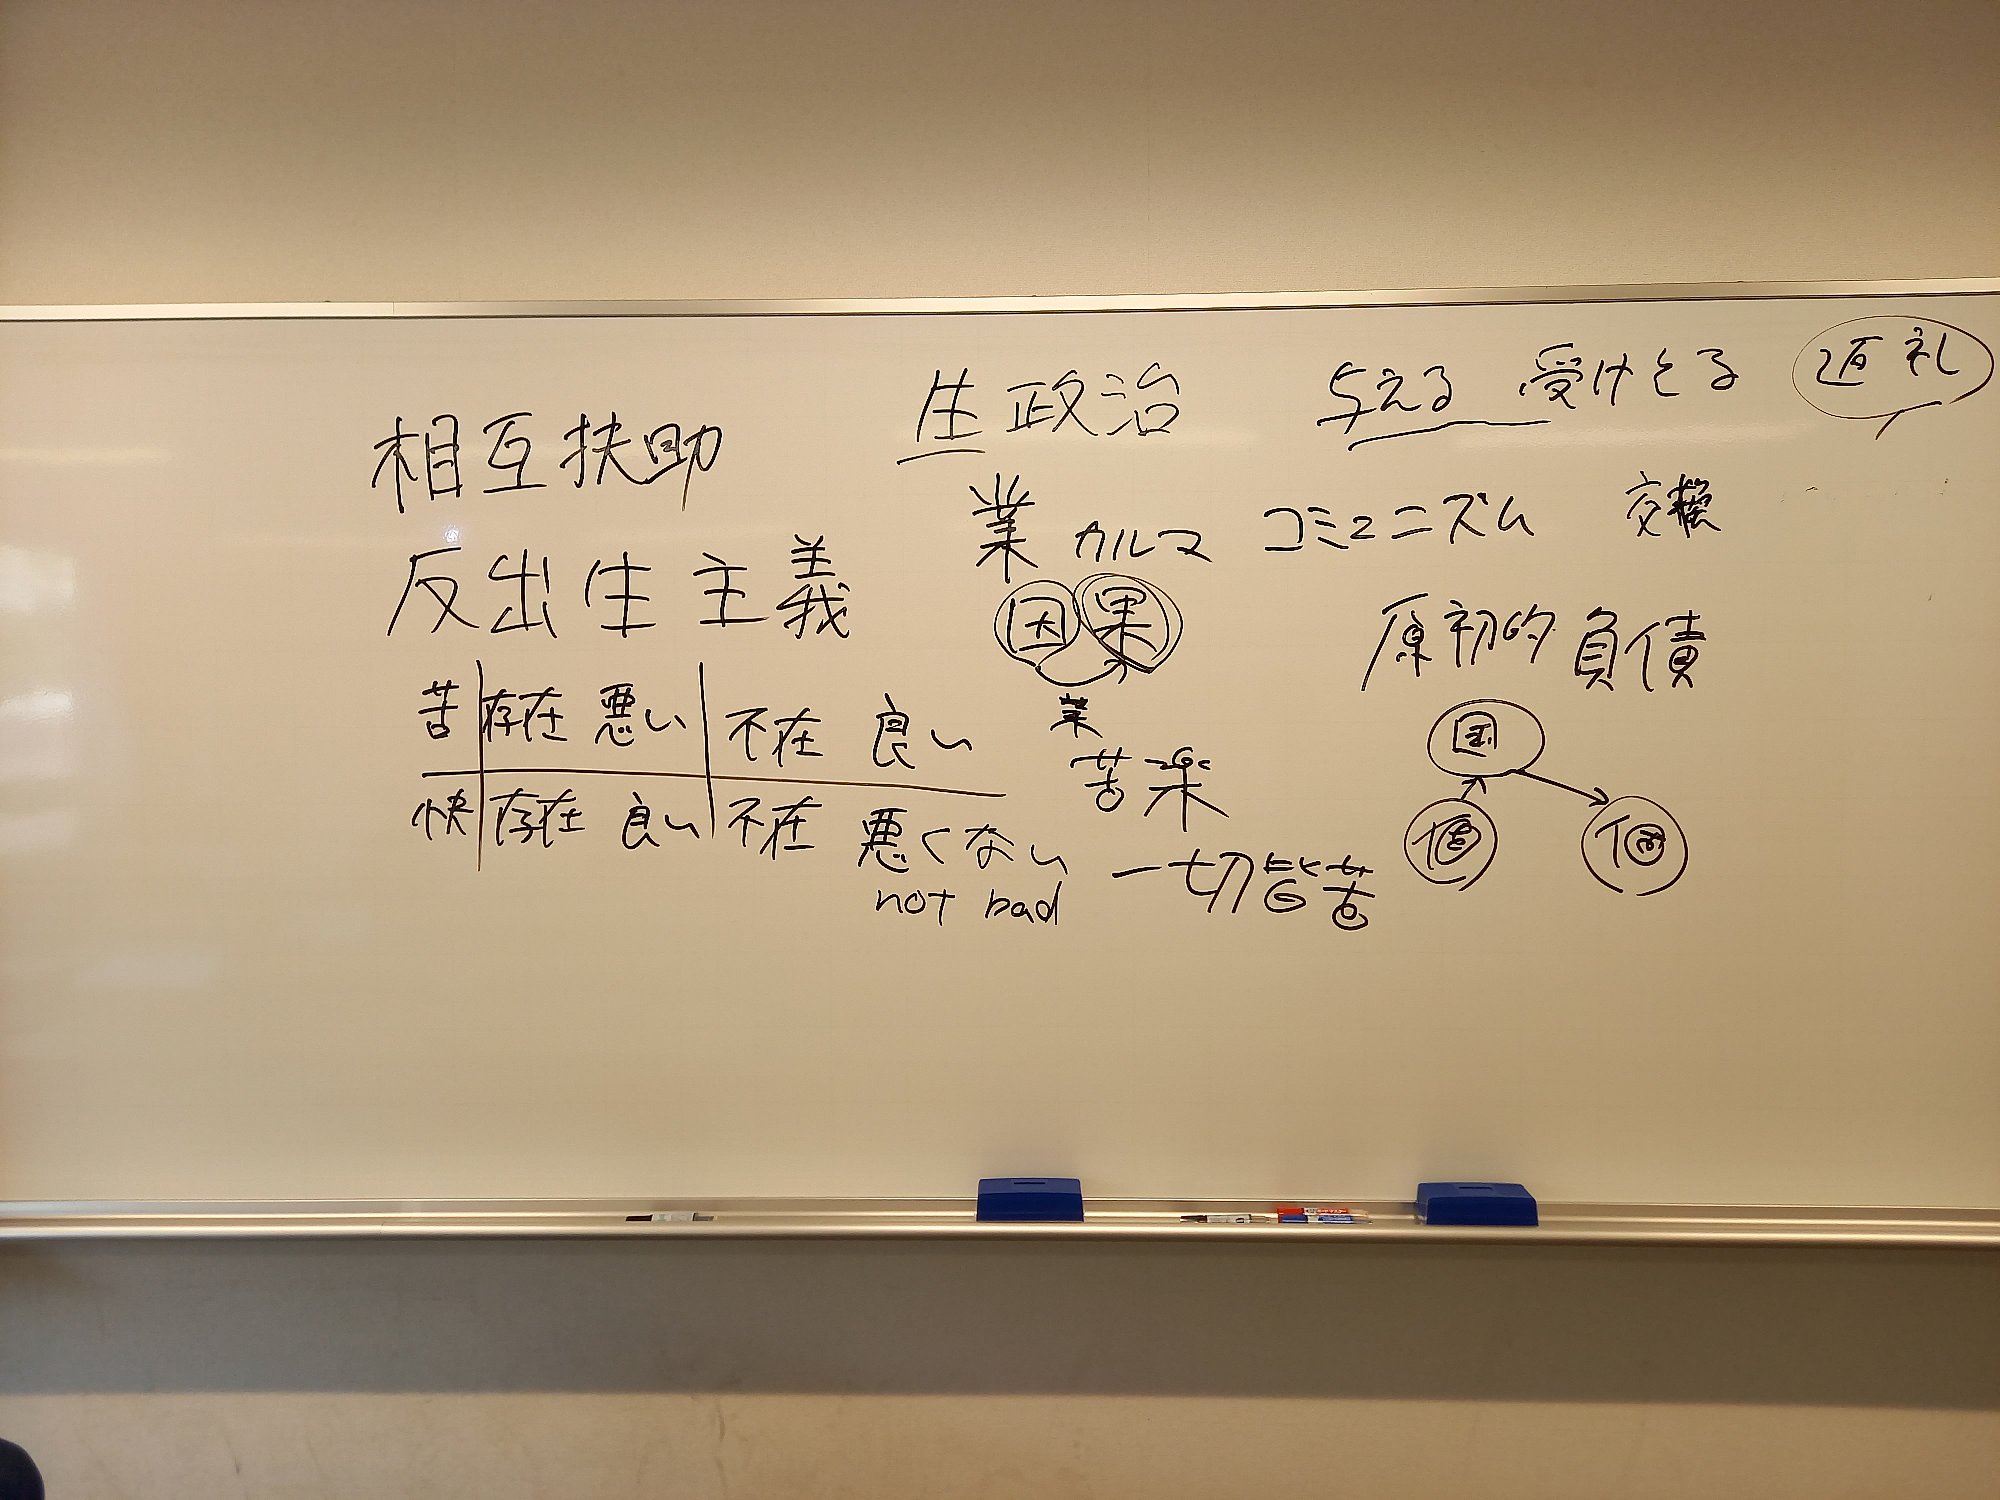 相互扶助
反出生主義
苦 存在 悪い 不在 良い
快 存在 良い 不在 悪くない
not bad
生政治
業 カルマ
因果
業
苦楽
一切皆苦
与える 受けとる 返礼
コミュニズム 交換
原初的負債
国
個 個